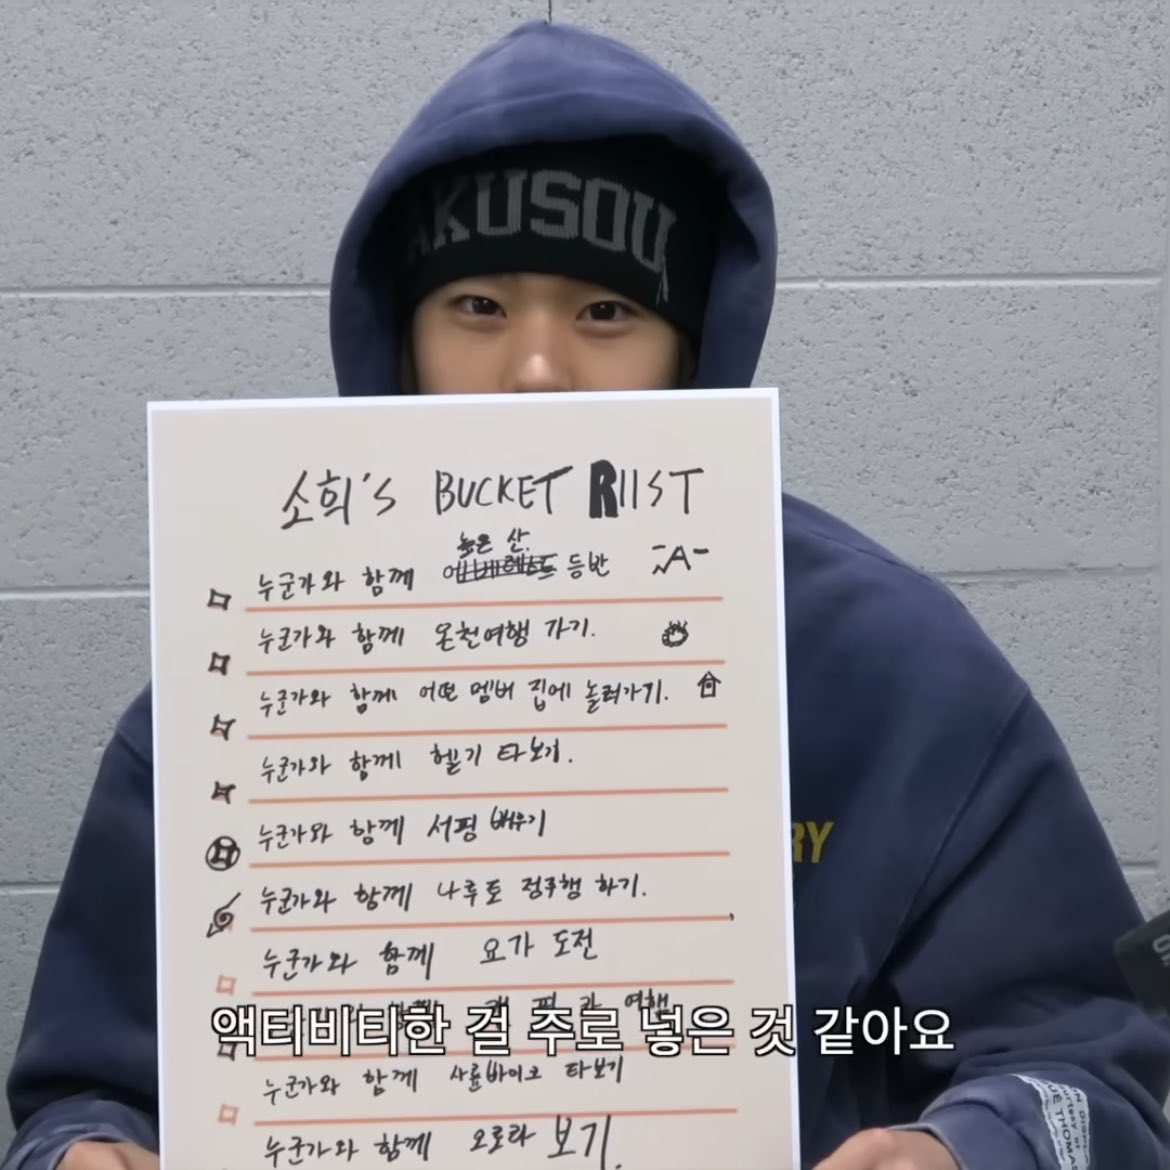 AKUSOU
소희's BUCKET RIIST
높은 산
누군가와 함께 에베레스트 등반 -A-
누군가와 함께 온천여행 가기.
누군가와 함께 어떤 멤버 집에 놀러가기.
누군가와 함께 헬기 타보기.
누군가와 함께 서핑 배우기
누군가와 함께 나루토 정주행 하기.
누군가와 함께 요가 도전
여행
액티비티한 걸 주로 넣은 것 같아요
누군가와 함께 사륜바이크 타보기
누군가와 함께 오로라 보기.
RY